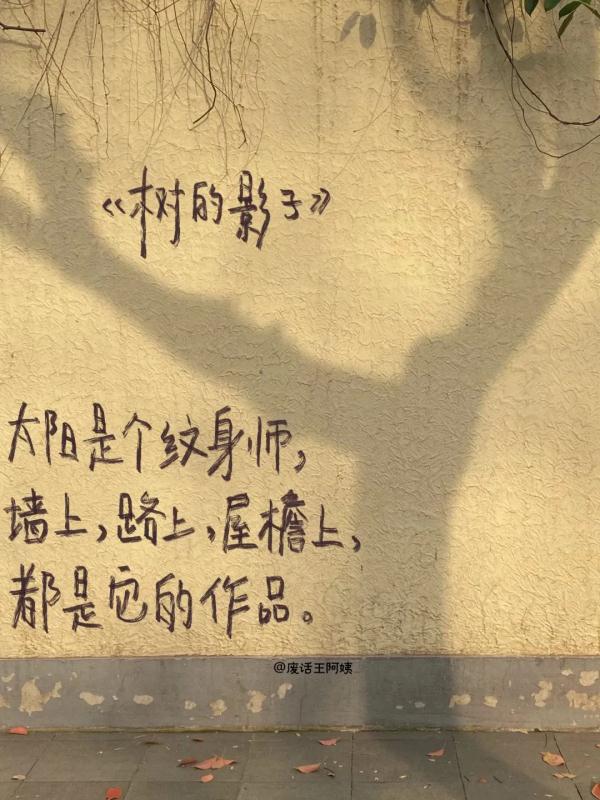 《树的影子》
太阳是个纹身师，
墙上，路上，屋檐上，
都是它的作品。
@废话王阿姨